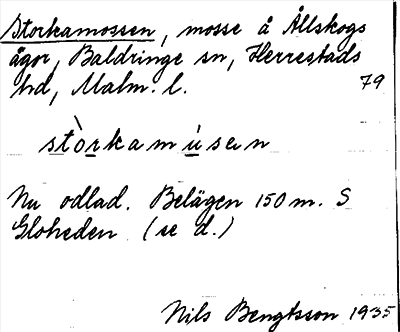 Storkamossen, mosse å Ållskogs
ägor, Baldringe sn, Herrestads
hd, Malm. l. 79
stòrkamùsen
Nu odlad. Belägen 150 m. S
Gloheden (se d.)
Nils Bengtsson 1935